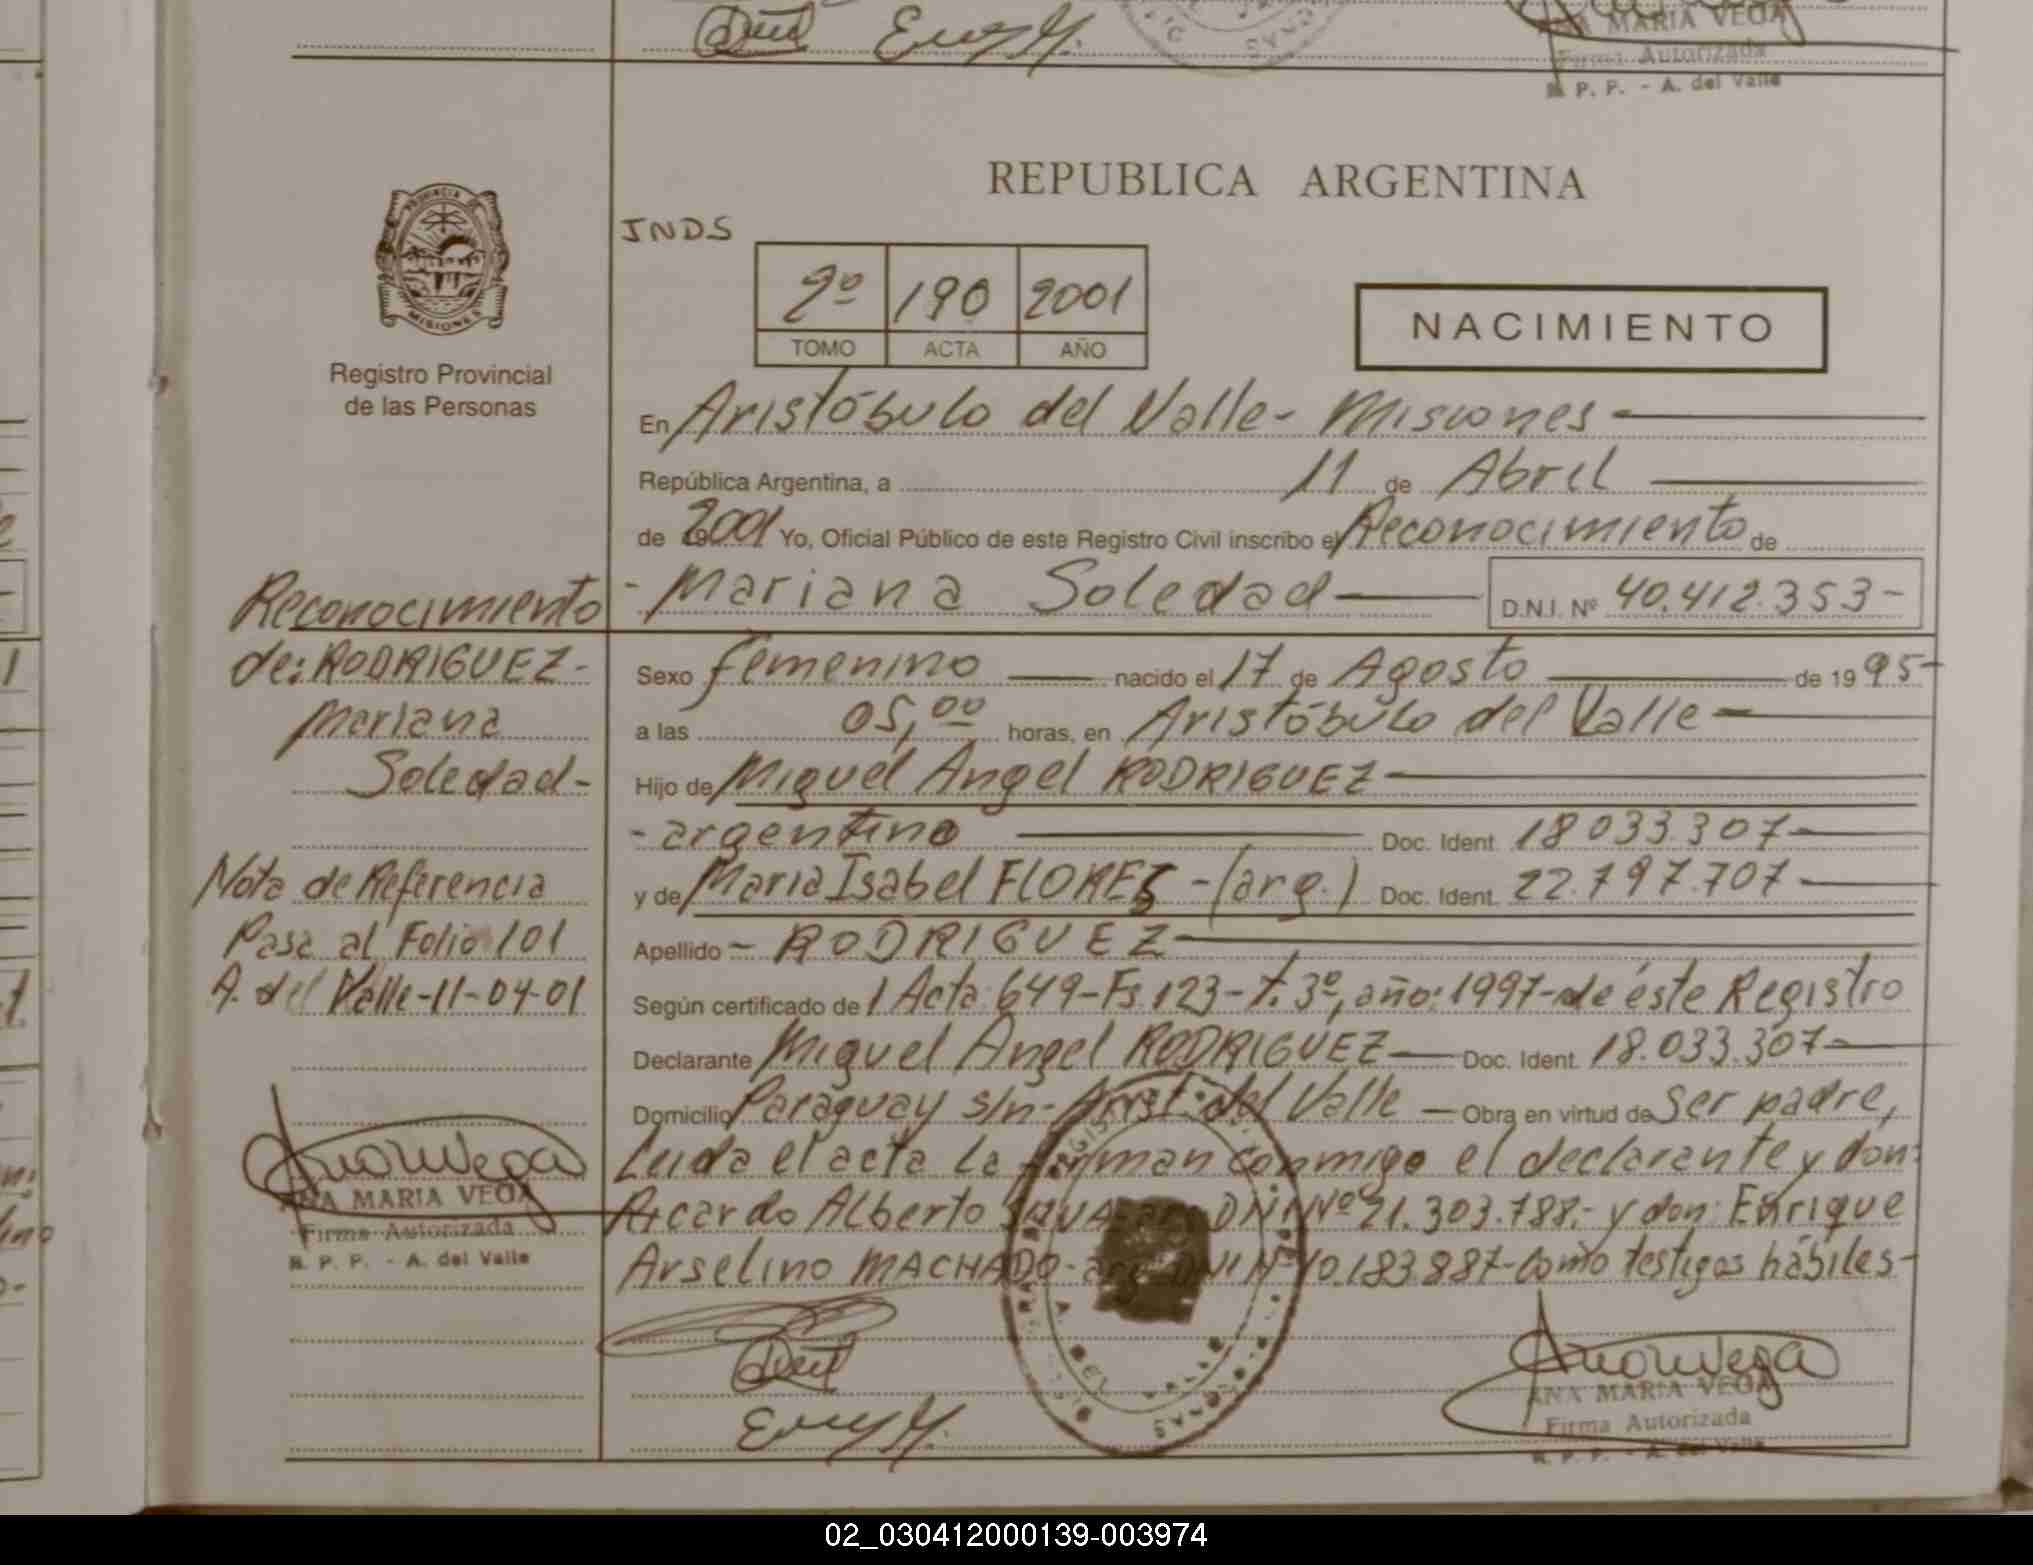 ANA MARIA VEGA
Firma Autorizada
R. P. P. - A. del Valle
REPUBLICA ARGENTINA
PROVINCIA DE
MISIONES
Registro Provincial
de las Personas
INDS
2º 190 2001
TOMO ACTA AÑO
NACIMIENTO
En Aristóbulo del Valle- Misiones
República Argentina, a 11 de Abril
de 2001 Yo, Oficial Público de este Registro Civil inscribo el Reconocimiento de
- Mariana Soledad D.N.I. Nº 40.412.353-
Reconocimiento
de: RODRIGUEZ-
Mariana
Soledad-
Nota de Referencia
Pasa al Folio 101
A. del Valle-11-04-01
ANA MARIA VEGA
Firma Autorizada
R. P. P. - A. del Valle
Sexo femenino nacido el 17 de Agosto de 1995-
a las 05,00 horas, en Aristóbulo del Valle-
Hijo de Miguel Angel RODRIGUEZ-
- argentino Doc. Ident. 18.033.307-
y de Maria Isabel FLORES -(arg.) Doc. Ident. 22.797.707-
Apellido - RODRIGUEZ-
Según certificado de 1 Acta: 649-Fs.123-t.3º, año: 1997-de éste Registro
Declarante Miguel Angel RODRIGUEZ- Doc. Ident. 18.033.307-
Domicilio Paraguay s/n- Arist. del Valle - Obra en virtud de ser padre,
Leida el acta la firman conmigo el declarante y don:
Ricardo Alberto DNI Nº 21.303.788.- y don: Enrique
Arselino MACHADO- arg. DNI Nº 10.183.887-como testigos hábiles-
A. DEL VALLE
ANA MARIA VEGA
Firma Autorizada
R. P. P. - A. del Valle
02_030412000139-003974